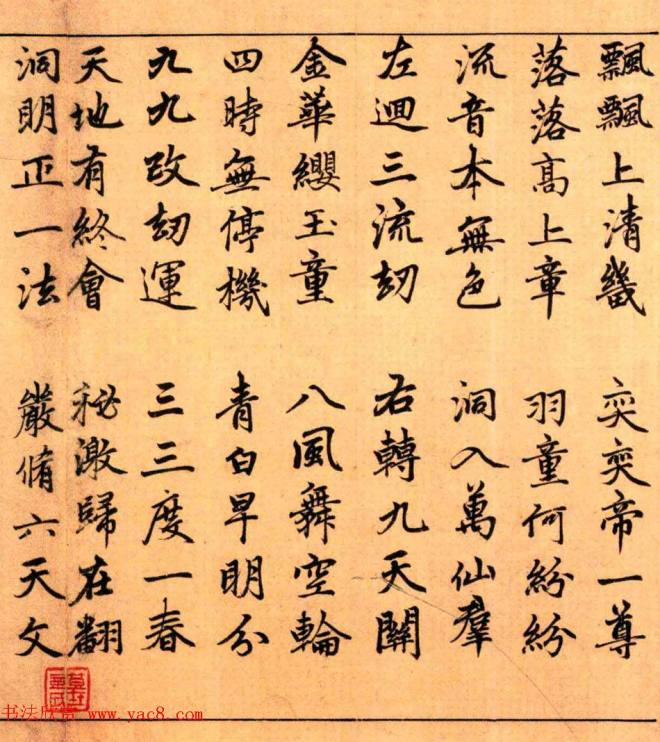 飄飄上清畿 奕奕帝一尊
落落高上章 羽童何紛紛
流音本無色 洞入萬仙羣
左迴三流刧 右轉九天關
金華纓玉童 八風舞空輪
四時無停機 青白早明分
九九改刧運 三三度一春
天地有終會 秘激歸在翻
洞明正一法 嚴脩六天文
书法欣赏 www.yac8.com